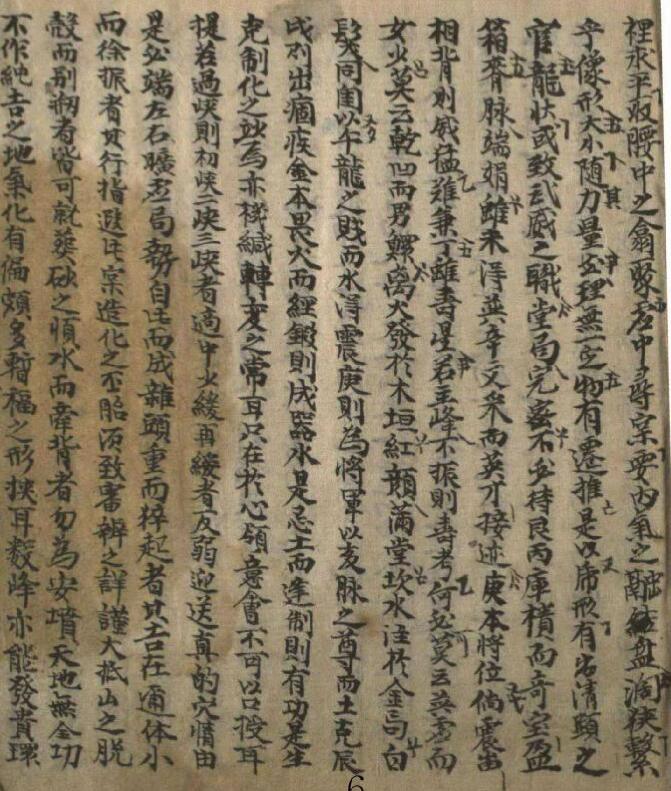 裡求平坂腰中之翕聚虛中尋窠要內氣之融結盤洞狹繫
乎像形大小随力量必理無一定物有遷推是以席形有穷清顯之
官龍状或致武威之職堂局完密不必待艮丙庫横而竒室盈
箱奔脉端娟雖未淂巽辛文采而英才接迹庚本將位倘震出
相背則威猛难兼丁雖壽星若主峰不振則壽考何必莫云英雷而
女少莫云乾凹而男鰥离火發於木垣紅顔滿堂坎水注於金局白
髮同閨以午龍之賎而水淂震庚則為將軍以亥脉之尊而土克辰
戌列出痼疾金本畏火而經鍛則成器水是忌土而逢制則有功是生
克制化之妙為亦樣緘轉变之常耳只在於心領意會不可以口授耳
提若過峽則初峡二峡三峡者適中少緩再緩者反弱迎送真的穴情由
是必端左右曠者局勢自此而成雜頭重而猝起者其吉在通体小
而徐振者其行指遐此宲造化之丕胎須致審辨之詳謹大抵山之脱
殻而剔㓨者皆可就葬砂之順水而牽背者勿為安墳天地無全功
不作純吉之地氣化有偏頗多暫福之形挾耳数峰亦能發貴環
6